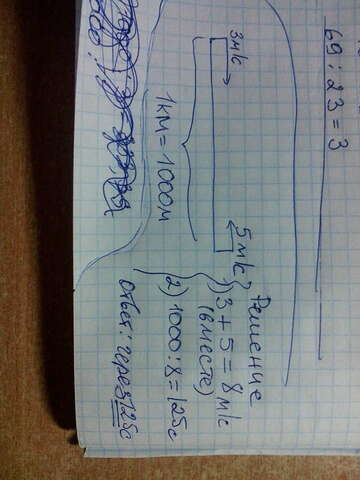 69 : 23 = 3
3м/с
5м/с
1км = 1000м
Решение
1) 3 + 5 = 8м/с
(вместе)
2) 1000 : 8 = 125с
ответ: через 125с